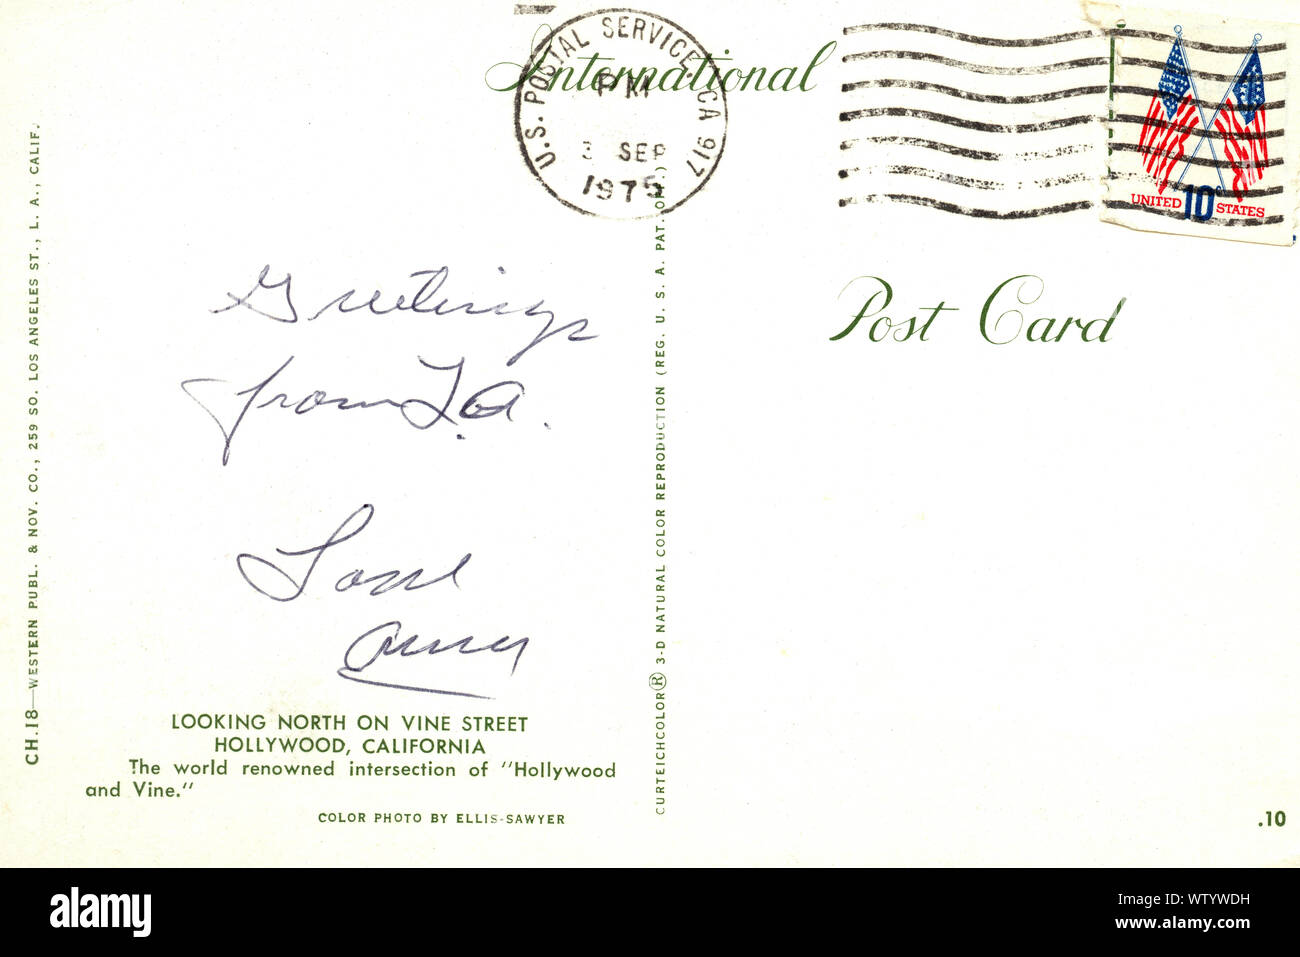 International
U.S. POSTAL SERVICE, CA 917
PM
3 SEP
1975
UNITED 10c STATES
Post Card
Greetings
from L.A.
Love
LOOKING NORTH ON VINE STREET
HOLLYWOOD, CALIFORNIA
The world renowned intersection of "Hollywood
and Vine."
COLOR PHOTO BY ELLIS-SAWYER
CH.18—WESTERN PUBL. & NOV. CO., 259 SO. LOS ANGELES ST., L. A., CALIF.
CURTEICHCOLOR® 3-D NATURAL COLOR REPRODUCTION (REG. U. S. A. PAT.
.10
alamy
Image ID: WTYWDH
www.alamy.com